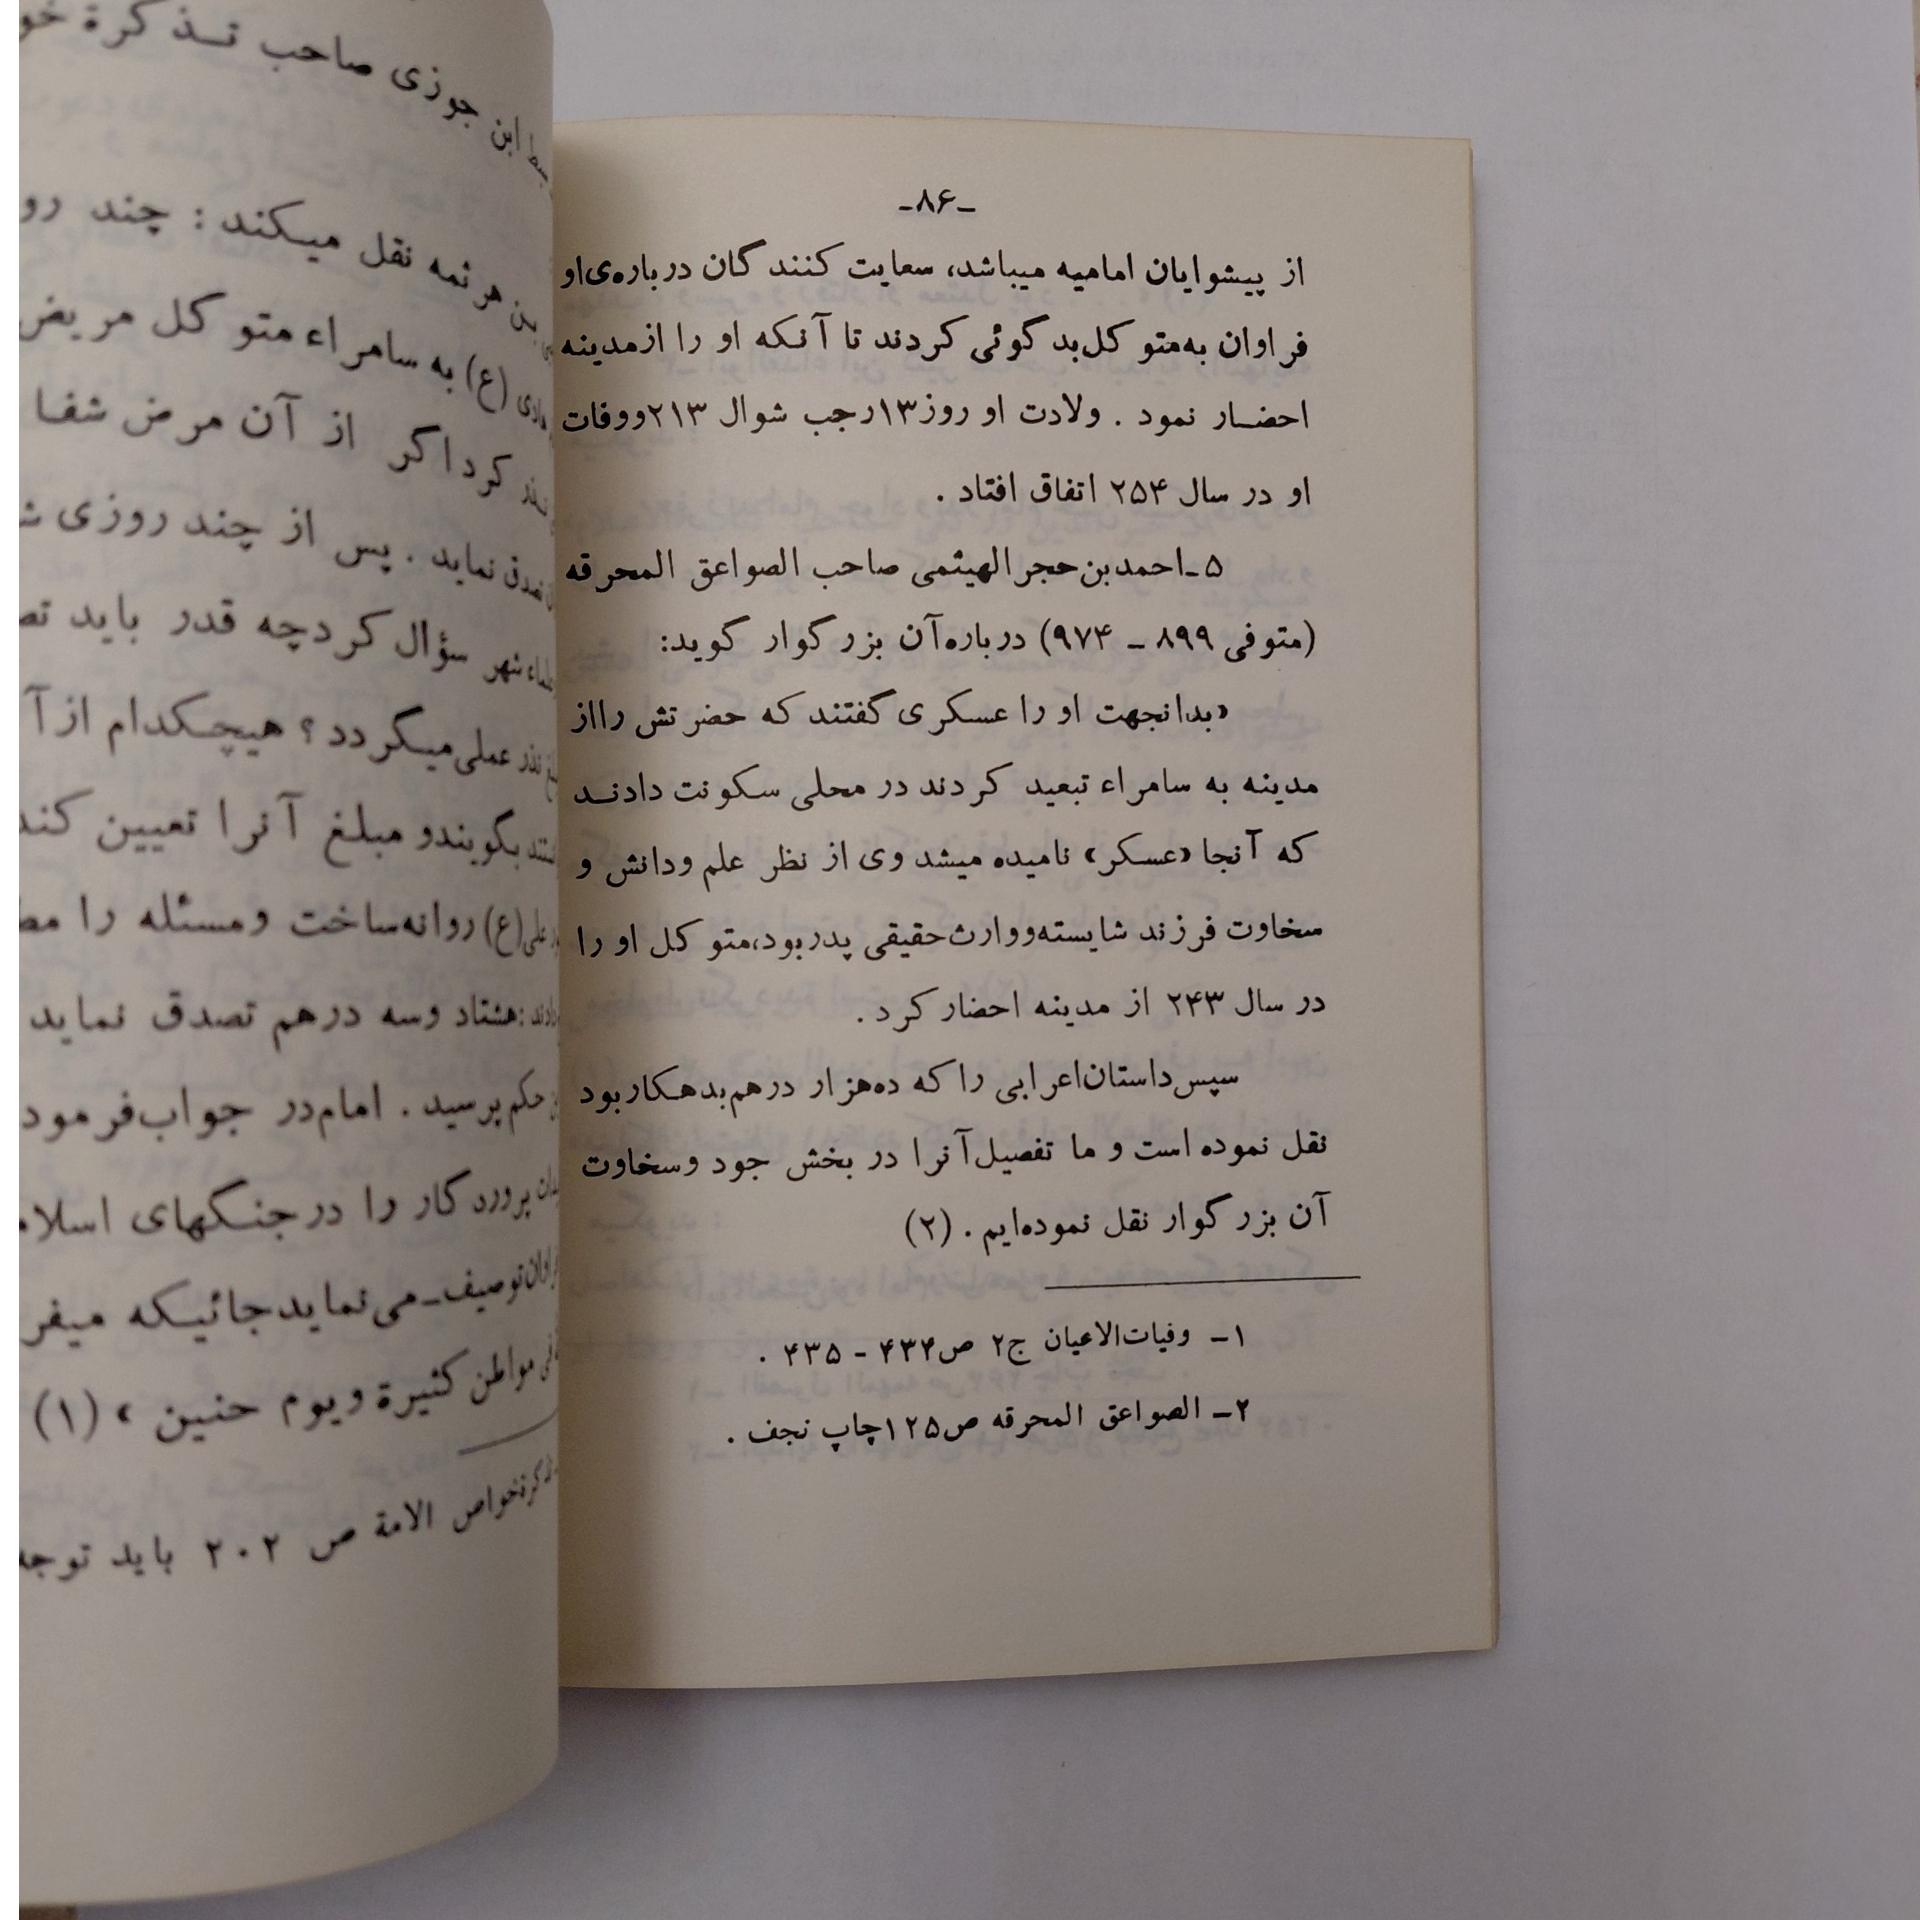 -۸۶-
از پیشوایان امامیه میباشد، سعایت کنندگان درباره‌ی او
فراوان به‌متوکل‌بدگوئی کردند تا آنکه او را ازمدینه
احضـار نمود . ولادت او روز۱۳رجب شوال ۲۱۳ووفات
او در سال ۲۵۴ اتفاق افتاد .
۵ـ احمدبن‌حجرالهیثمی صاحب الصواعق المحرقه
(متوفی ۸۹۹ - ۹۷۴) درباره‌آن بزرگوار گوید:
«بدانجهت او را عسکری گفتند که حضرتش رااز
مدینه به سامراء تبعید کردند در محلی سکونت دادنـد
که آنجا «عسکر» نامیده میشد وی از نظر علم ودانش و
سخاوت فرزند شایسته‌ووارث‌حقیقی پدربود،متوکل او را
در سال ۲۴۳ از مدینه احضار کرد .
سپس‌داستان‌اعرابی را که ده‌هزار درهم‌بدهکاربود
نقل نموده است و ما تفصیل‌آنرا در بخش جود وسخاوت
آن بزرگوار نقل نموده‌ایم . (۲)
۱- وفیات‌الاعیان ج۲ ص۴۳۴ - ۴۳۵ .
۲- الصواعق المحرقه ص۱۲۵چاپ نجف .
ابن جوزی صاحب تـذکرة
هرثمه نقل میـکند : چند
(ع) به سامراء متوکل مریض
کرداگر از آن مرض شفا
نماید . پس از چند روزی
شهر سؤال کردچه قدر باید
نذر عملی‌میـگردد ؟ هیچـکدام ازآ
بگویندو مبلغ آنرا تعیین
علی(ع) روانه‌ساخت ومسئله را
:هشتاد وسه درهم تصدق نماید
حکم‌پرسید . امام‌در جواب‌فرمود
پروردگار را درجنـگهای
توصیف-می‌نمایدجائیـکه
مواطن کثیرة ویوم حنین » (۱)
خواص الامة ص ۲۰۲ باید